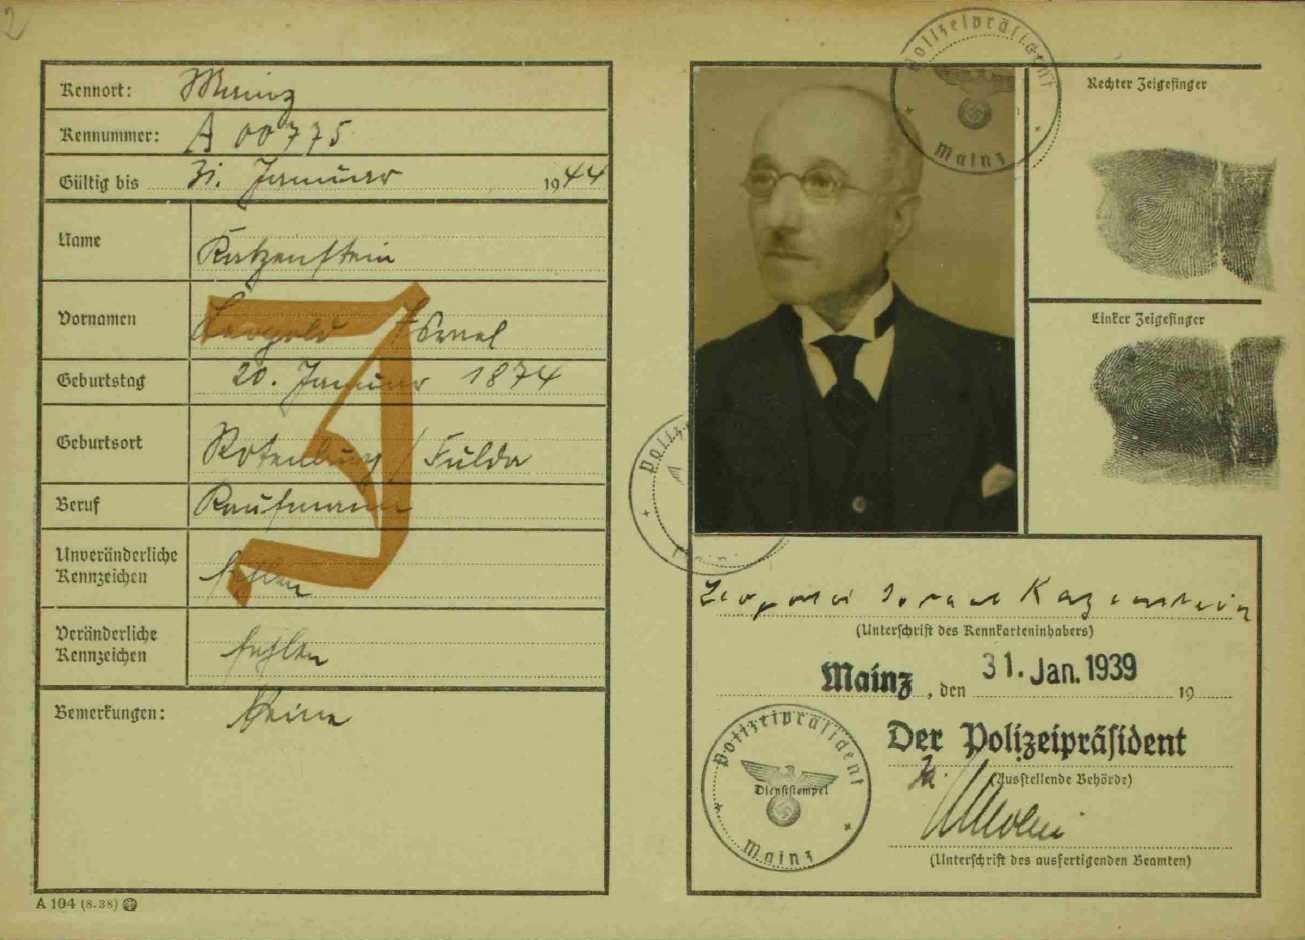 2
Kennort: Mainz
Kennummer: A 00775
Gültig bis 31. Januar 1944
Name Katzenstein
Vornamen Leopold Israel
Geburtstag 20. Januar 1874
Geburtsort Rotenburg / Fulda
Beruf Kaufmann
Unveränderliche
Kennzeichen fehlen
Veränderliche
Kennzeichen fehlen
Bemerkungen: Keine
A 104 (8.38)
J
Polizeipräsident
Mainz
Rechter Zeigefinger
Linker Zeigefinger
Leopold Israel Katzenstein
(Unterschrift des Kennkarteninhabers)
Mainz, den 31. Jan. 1939 19
Der Polizeipräsident
(Ausstellende Behörde)
Polizeipräsident
Dienststempel
Mainz
(Unterschrift des ausfertigenden Beamten)